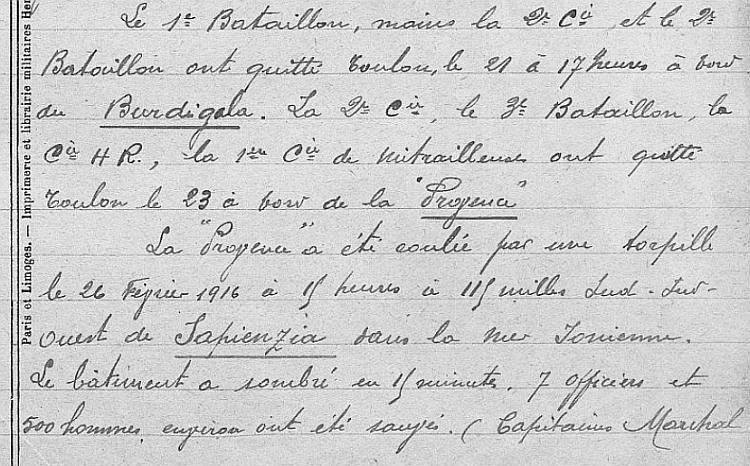 Le 1er Bataillon, moins la 2e Cie et le 2e
Bataillon ont quitté Toulon, le 21 à 17 heures à bord
du Burdigala. La 2e Cie, le 3e Bataillon, la
Cie H R., la 1ere Cie de Mitrailleuses ont quitté
Toulon le 23 à bord de la "Provence"
La "Provence" a été coulée par une torpille
le 26 Février 1916 à 15 heures à 115 milles Sud-Sud-
Ouest de Sapienzia dans la mer Ionienne.
Le bâtiment a sombré en 15 minutes. 7 officiers et
500 hommes environ ont été sauvés. (Capitaines Marchal
Paris et Limoges. — Imprimerie et librairie militaires Hen